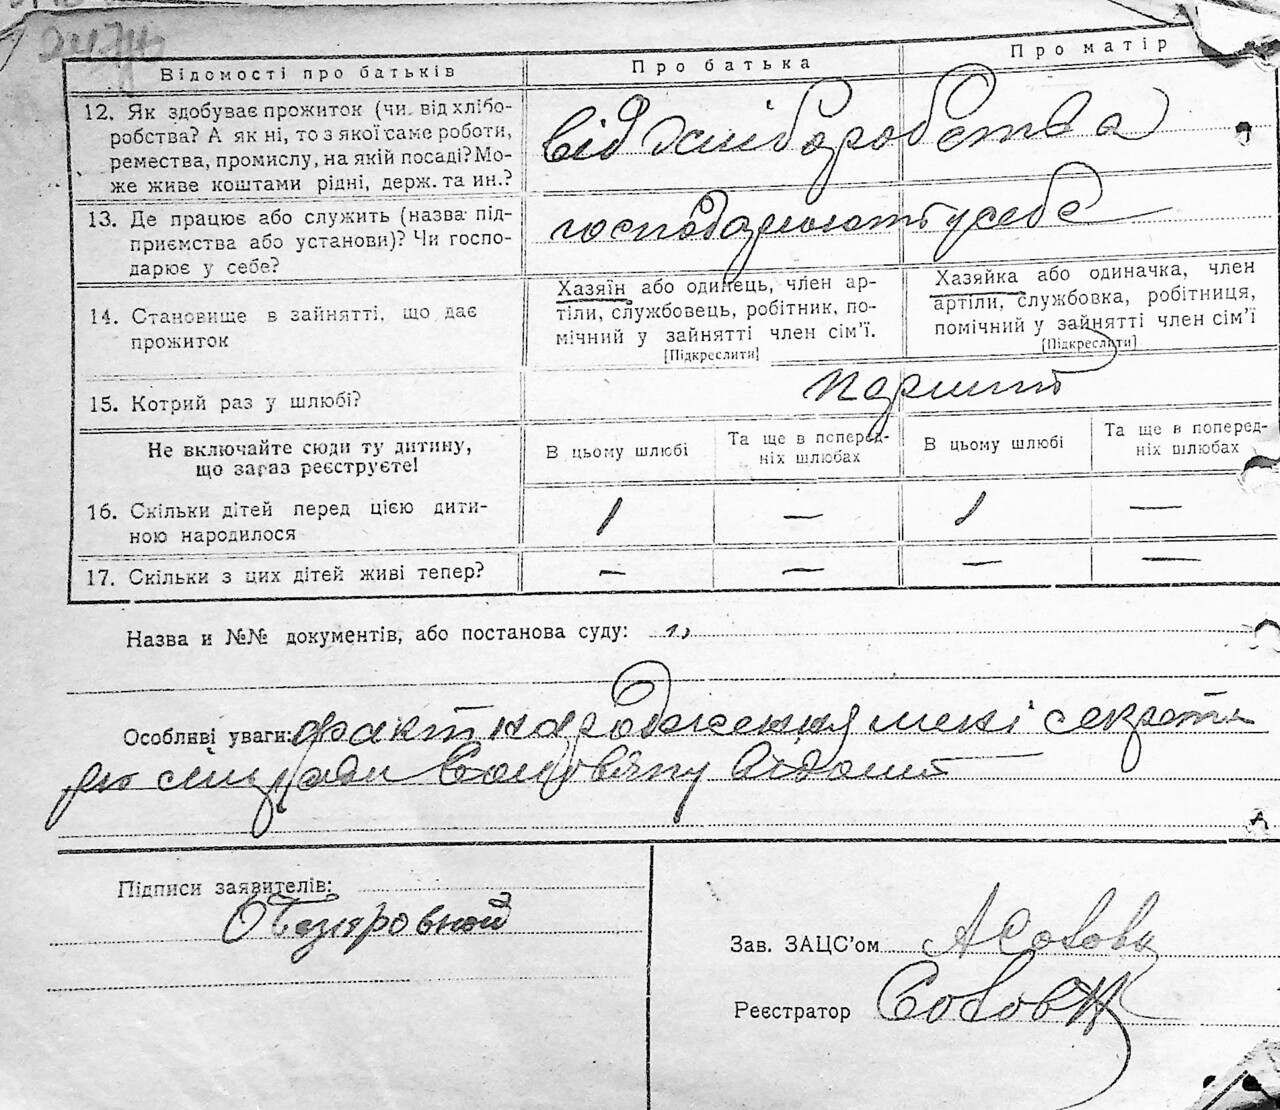 Відомості про батьків
Про батька
Про матір
12. Як здобуває прожиток (чи від хлібо-
робства? А як ні, то з якої саме роботи,
ремества, промислу, на якій посаді? Мо-
же живе коштами рідні, держ. та ин.?
від хліборобства
13. Де працює або служить (назва під-
приємства або установи)? Чи госпо-
дарює у себе?
господарюють у себе
14. Становище в зайнятті, що дає
прожиток
Хазяїн або одинець, член ар-
тілі, службовець, робітник, по-
мічний у зайнятті член сім'ї.
[Підкреслити]
Хазяйка або одиначка, член
артіли, службовка, робітниця,
помічний у зайнятті член сім'ї
[Підкреслити]
15. Котрий раз у шлюбі?
перший
Не включайте сюди ту дитину,
що зараз реєструєте!
В цьому шлюбі
Та ще в поперед-
ніх шлюбах
В цьому шлюбі
Та ще в поперед-
ніх шлюбах
16. Скільки дітей перед цією дити-
ною народилося
1 — 1 —
17. Скільки з цих дітей живі тепер?
— — — —
Назва и №№ документів, або постанова суду:
Особливі уваги: факт народження мені секрета
рю сільради відомий
Підписи заявителів:
Зав. ЗАЦС'ом
Реєстратор